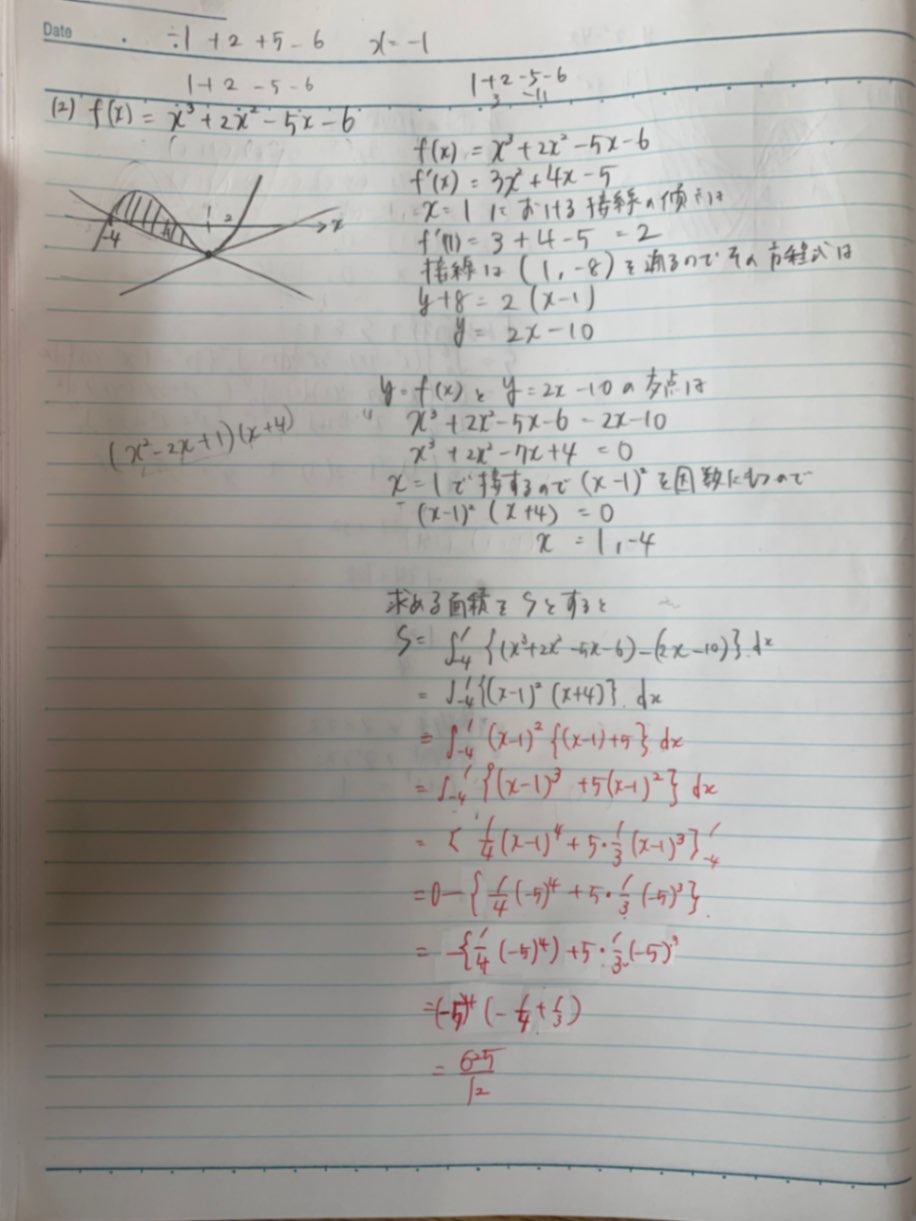 Date ÷1 +2 +5 -6 x=-1
1+2 -5 -6
1+2-5-6
3 -11
(2) f(x) = x³+2x²-5x-6
-4 1 2 x
f(x) = x³+2x²-5x-6
f'(x) = 3x²+4x-5
x=1 における接線の傾きは
f'(1) = 3+4-5 = 2
接線は (1, -8) を通るのでその方程式は
y+8 = 2(x-1)
y = 2x-10
y=f(x) と y=2x-10 の交点は
x³+2x²-5x-6 = 2x-10
(x²-2x+1)(x+4)
x³+2x²-7x+4 = 0
x=1で接するので (x-1)² を因数にもつので
(x-1)² (x+4) = 0
x = 1, -4
求める面積をSとすると
S= ∫₋₄¹ {(x³+2x²-5x-6)-(2x-10)} dx
= ∫₋₄¹ {(x-1)² (x+4)} dx
= ∫₋₄¹ (x-1)² {(x-1)+5} dx
= ∫₋₄¹ {(x-1)³ +5(x-1)²} dx
= [ 1/4 (x-1)⁴ + 5・1/3 (x-1)³ ]₋₄¹
=0-{ 1/4 (-5)⁴ + 5・1/3 (-5)³ }
= -{ 1/4 (-5)⁴) + 5・1/3 (-5)³
=(-5)⁴ (- 1/4 + 1/3)
= 625/12